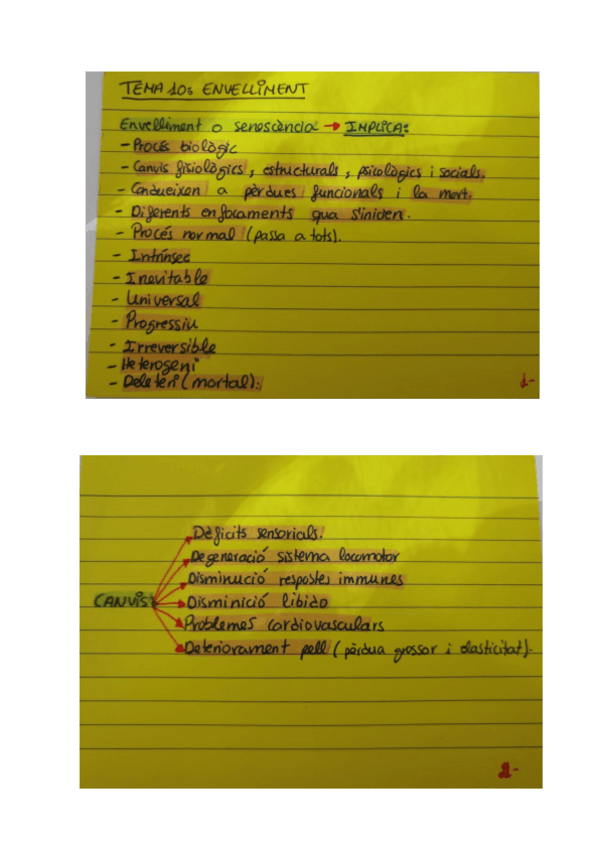 TEMA 10: ENVELLIMENT
Envelliment o senescència → IMPLICA:
- Procés biològic
- Canvis fisiològics, estructurals, psicològics i socials.
- Condueixen a pèrdues funcionals i la mort.
- Diferents enfocaments qua s'iniden.
- Procés normal (passa a tots).
- Intrínsec
- Inevitable
- Universal
- Progressiu
- Irreversible
- Heterogeni
- Deleteri (mortal).
1-
Dèficits sensorials.
Degeneració sistema locomotor
Disminució respostes immunes
CANVIS
Disminició libido
Problemes cardiovasculars
Deteriorament pell (pèrdua grossor i elasticitat).
2-